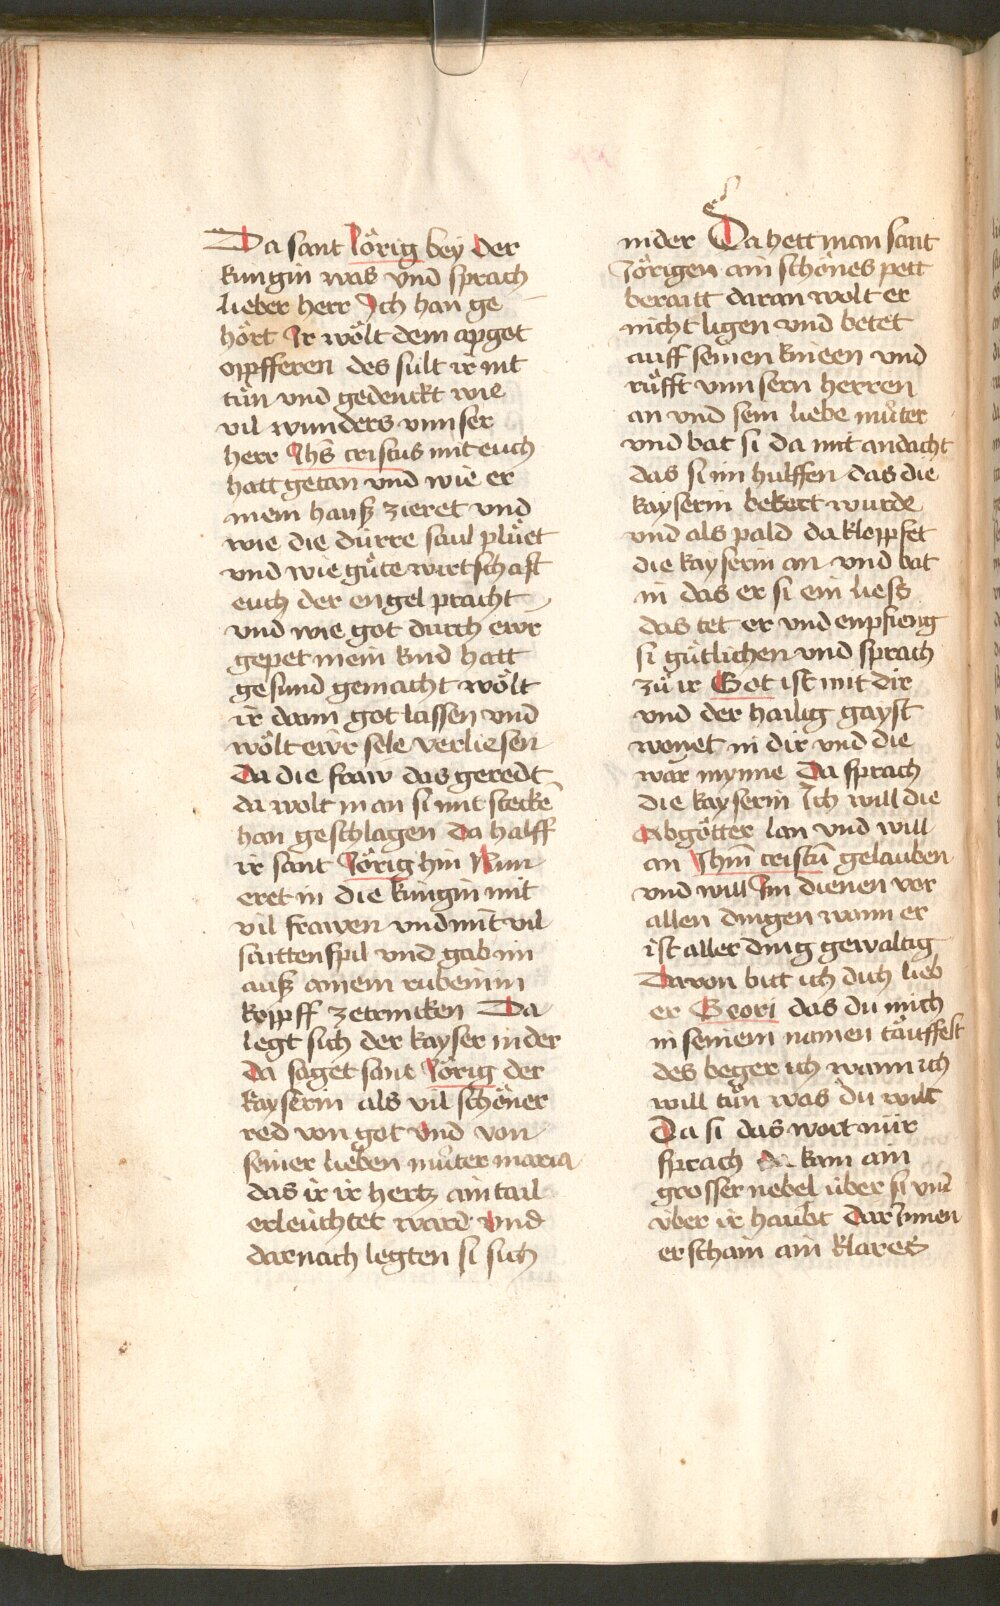 Da sant Jörig bey der
kungin was vnd sprach
lieber herr Ich han ge
hört Ir wölt dem apget
opfferen des sült ir nit
tün vnd gedenckt wie
vil wunders vnnser
herr Jhs cristus mit euch
hatt getan vnd wie er
mein hauß zieret vnd
wie die dürre saul plüet
vnd wie güte wirtschafft
euch der engel pracht
vnd wie got durch ewr
gepet mein kind hatt
gesund gemacht wölt
ir dann got lassen vnd
wölt ewr sele verliesen
Da die fraw das geredt
da wolt man si mit steckē
han geschlagen Da halff
ir sant Jörig hin Nun
eret in die kungin mit
vil frawen vnd mit vil
saittenspil vnd gab im
auß ainem rubeinin
kopff ze trincken Da
legt sich der kayser nider
Da saget sant Jörig der
kayserin als vil schöner
red von got vnd von
seiner lieben müter maria
das ir ir hertz ain tail
erleüchtet ward vnd
darnach legten si sich
nider Da hett man sant
Jörigen ain schönes pett
beraitt daran wolt er
nicht ligen vnd betet
auff seinen knieen vnd
rüfft vnnsern herren
an vnd sein liebe müter
vnd bat si da mit andacht
das si im hulffen das die
kayserin bekert wurde
vnd als pald da klopfet
die kayserin an vnd bat
in das er si ein liess
das tet er vnd enpfieng
si gütlichen vnd sprach
zü ir Got ist mit dir
vnd der hailig gayst
wonet in dir vnd die
war mynne Da sprach
die kayserin Ich will die
Abgötter lan vnd will
an Jhm cristū gelauben
vnd will Im dienen vor
allen dingen wann er
ist aller ding gewaltig
Darvon bitt ich dich lieb
er Geori das du mich
in seinem namen täuffest
des beger ich wann ich
will tün was du wilt
Da si das wort nür
sprach da kam ain
grosser nebel über si vnd
über ir haubt Dar Innen
erschain ain klares